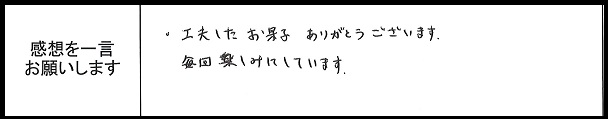 感想を一言
お願いします
・工夫した お菓子 ありがとうございます.
毎回 楽しみにしています.